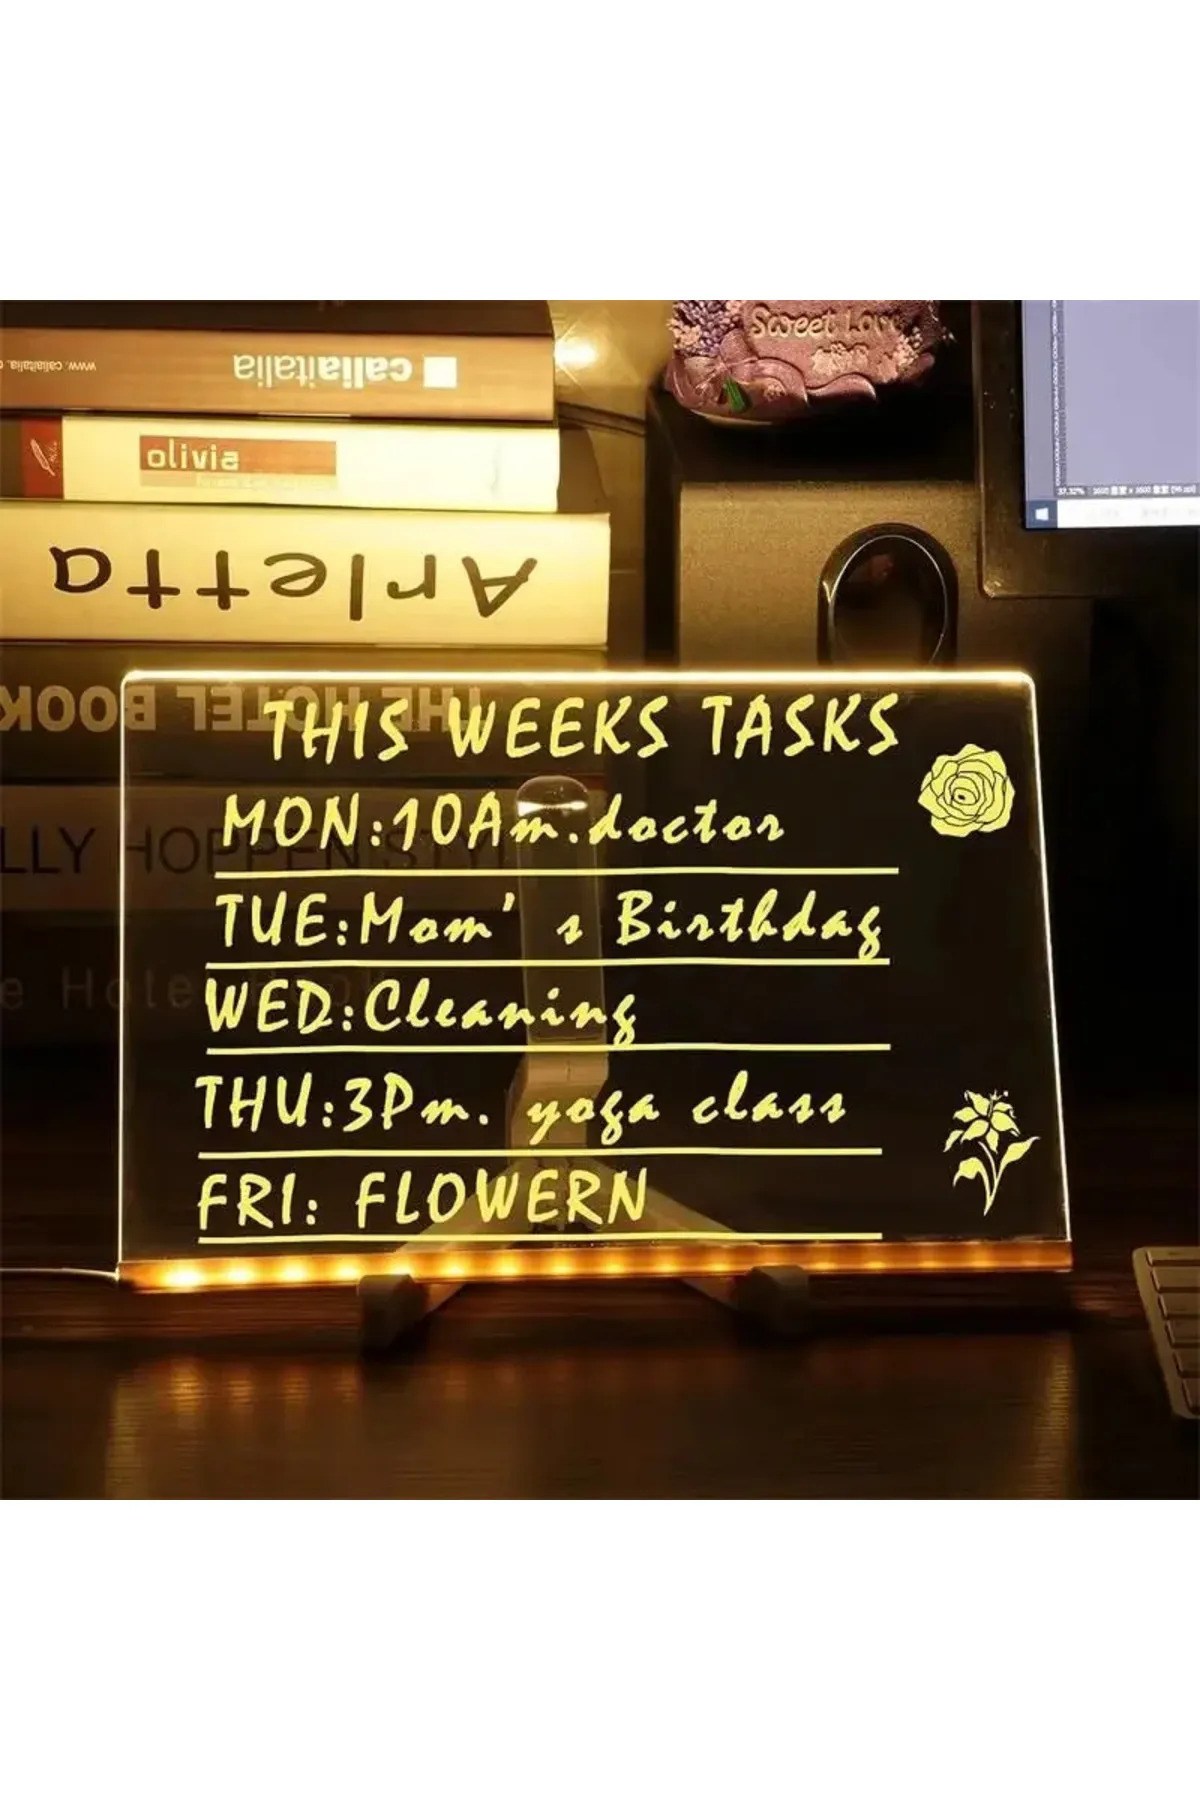 Sweet Love
www.caliaitalia.
caliaitalia
olivia
Arletta
THE HOTEL BOOK
LLY HOPPEN STY
e Hotel Book
THIS WEEKS TASKS
MON:10Am.doctor
TUE:Mom's Birthday
WED:Cleaning
THU:3Pm. yoga class
FRI: FLOWERN